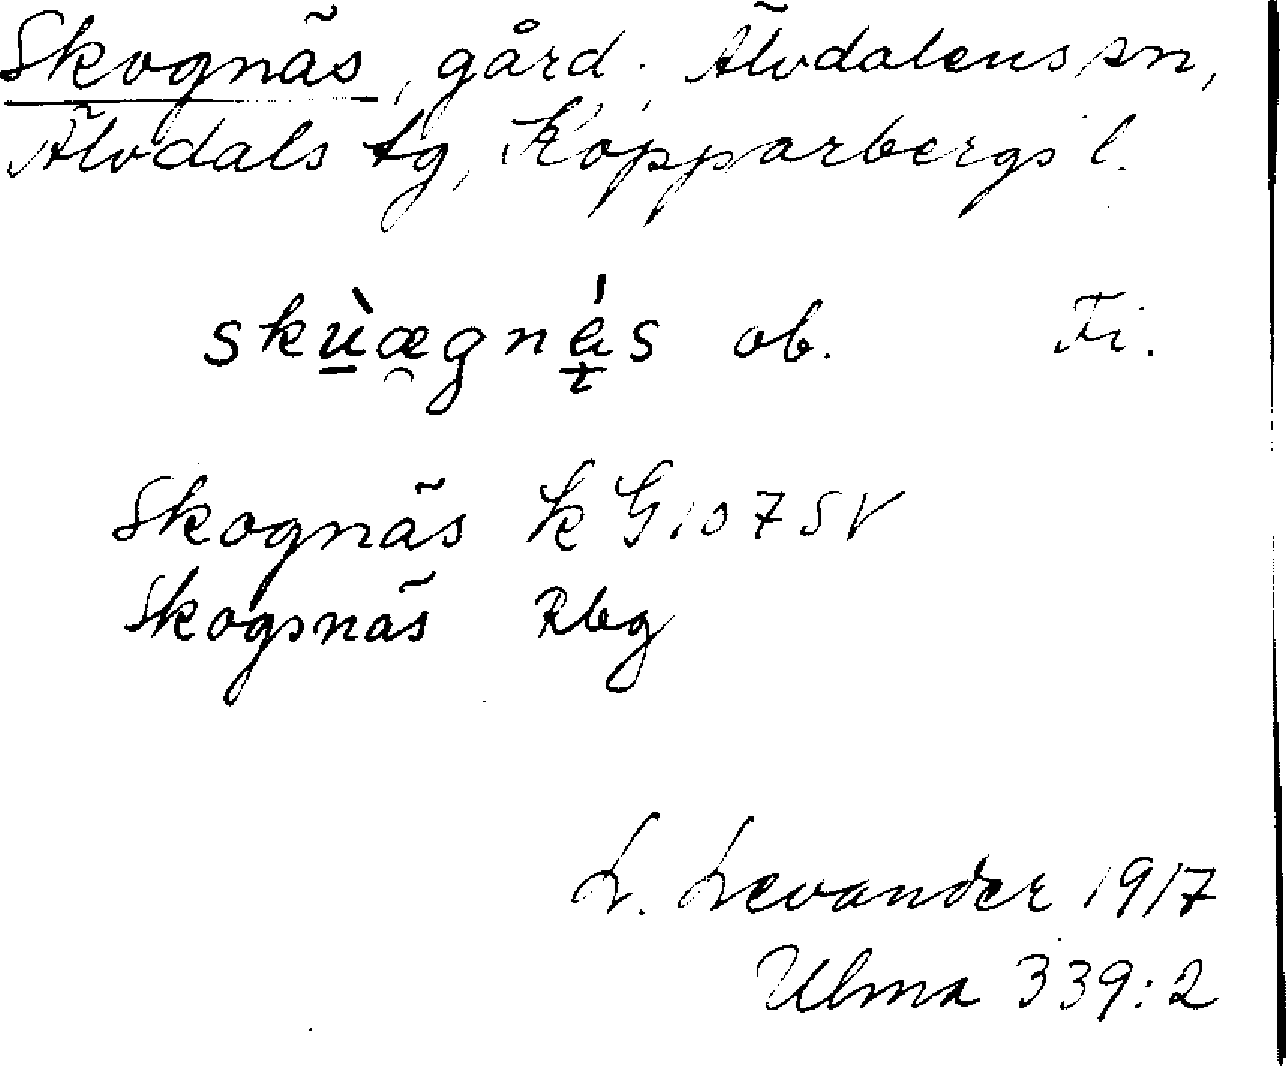 Skognäs, gård. Älvdalens sn,
Älvdals tg, Kopparbergs l.
skù̠æ̯gnás ob. Fi.
Skognäs k G 107 SV
Skogsnäs Rbg
L. Levander 1917
Ulma 339:2